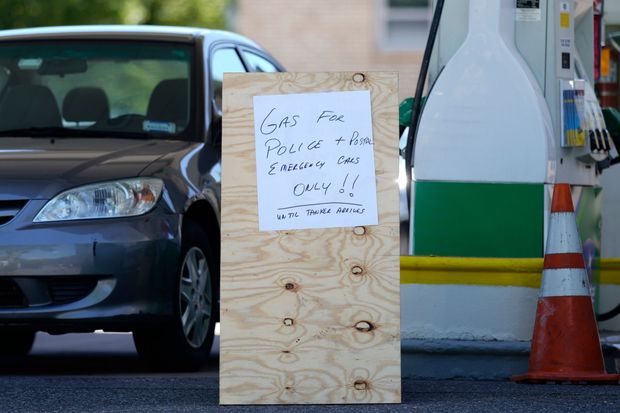 GAS FOR
POLICE + POSTAL
EMERGENCY CARS
ONLY!!
UNTIL TANKER ARRIVES